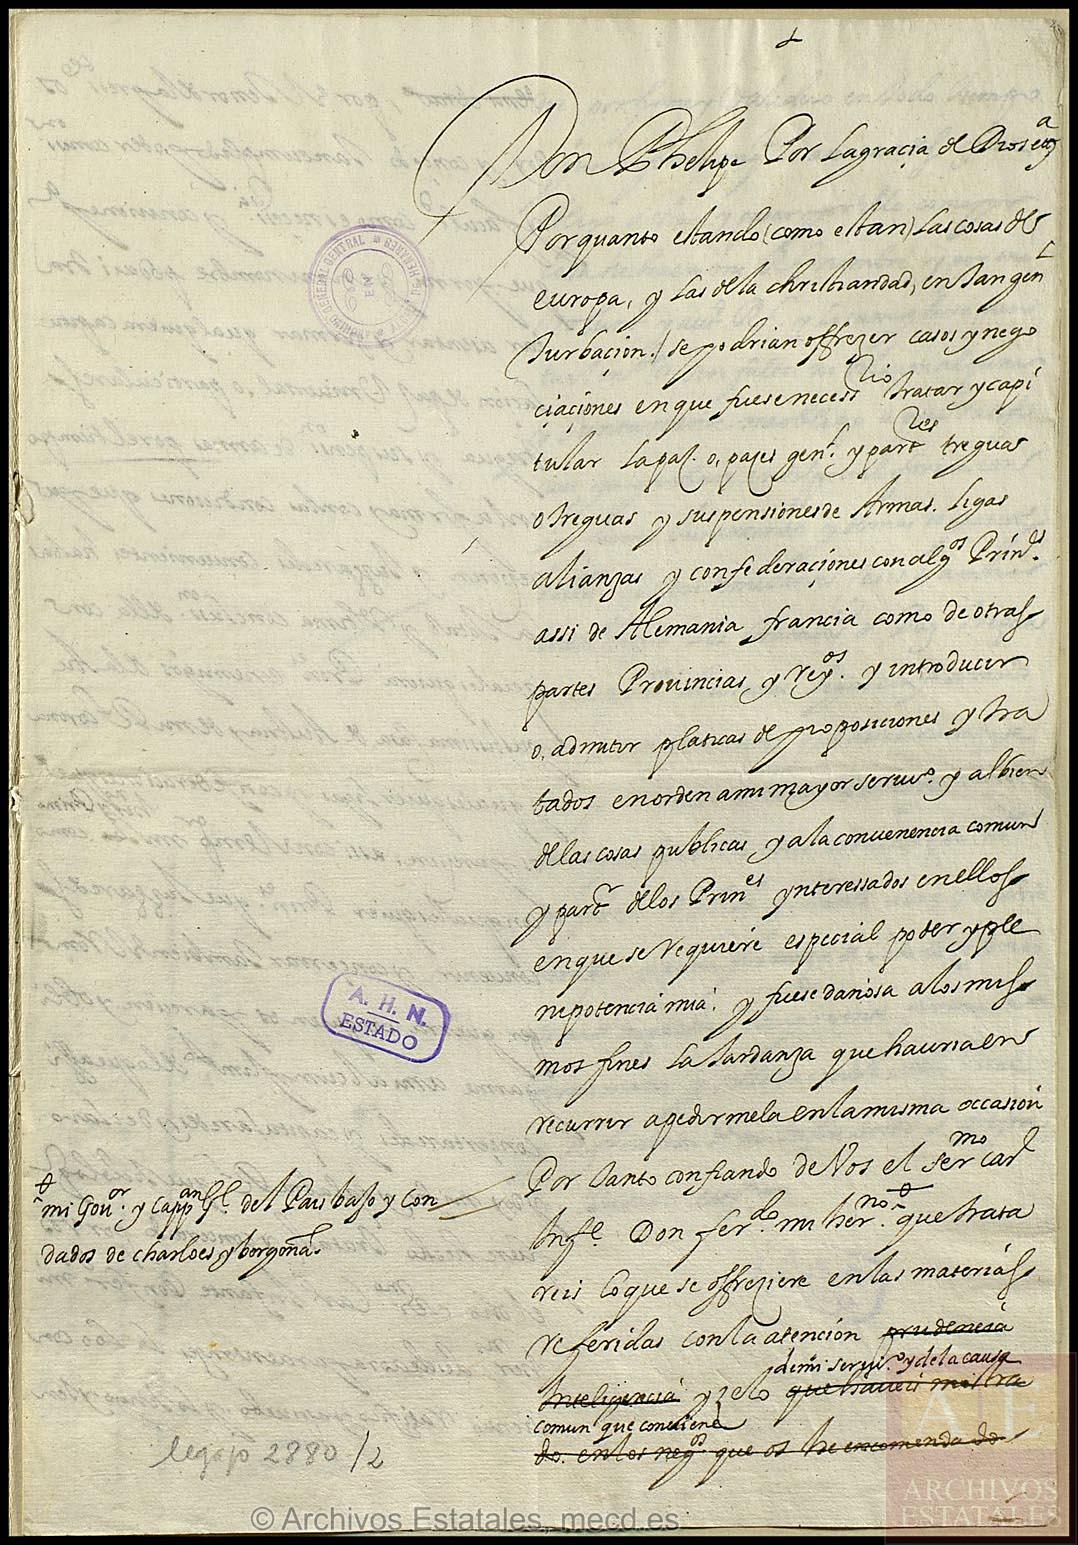 Don Phelipe Por la gracia de Dios etcª
Por quanto estando (como estan) las cosas de
europa, y las de la christiandad, en tan gen^l
turbacion.) se podrian offrezer casos y nego
ciaçiones en que fuese necess^rio tratar y capi
tular la paz. o, pazes gen^l. y part^res treguas
o treguas y suspensiones de Armas. ligas
alianzas y confederaçiones con alg^os Prin^es.
assi de Alemania francia como de otras
partes Prouincias, y rey^os. y introducir
o, admitir platicas de proposiciones y tra
tados en orden a mi mayor seruiº. y al bien
de las cosas publicas, y a la conuenencia comun
y part^r de los Prin^es ynteressados en ellos
en que se requiere especial poder y ple
nipotencia mia. y fuese dañosa a los mis
mos fines la tardanza que hauria en
recurrir a pedirmela en la misma occasion
Por tanto confiando de Vos el ser^mo car^l
Inf^e. Don fer^do mi her^no. que trata
reis lo que se offreziere en las materias
referidas con la atencion prudencia
de mi seruiº. y de la causa
Inteligencia y zelo que haueis mostra
comun que conuiene
do. en los neg^os que os he encomendado
mi Gou^or. y Capp^an G^l. del Pais bajo y con
dados de charloes y borgoña.
A. H. N.
ESTADO
ARCHIVO GENERAL CENTRAL
legajo 2880/2
© Archivos Estatales, mecd.es
AE
ARCHIVOS
ESTATALES